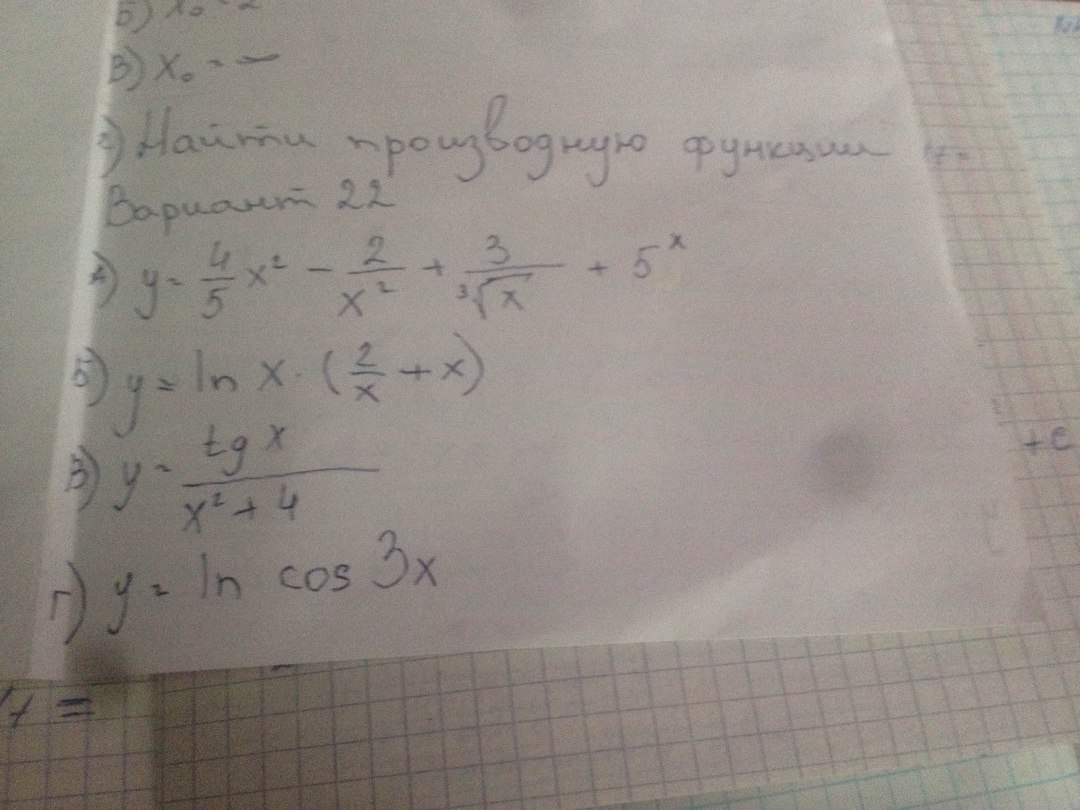 Б) x₀ = 2
В) x₀ = -∞
2) Найти производную функции
Вариант 22
А) y = 4/5 x² - 2/x² + 3/∛x + 5ˣ
Б) y = ln x · (2/x + x)
В) y = tg x / (x² + 4)
Г) y = ln cos 3x
+ e